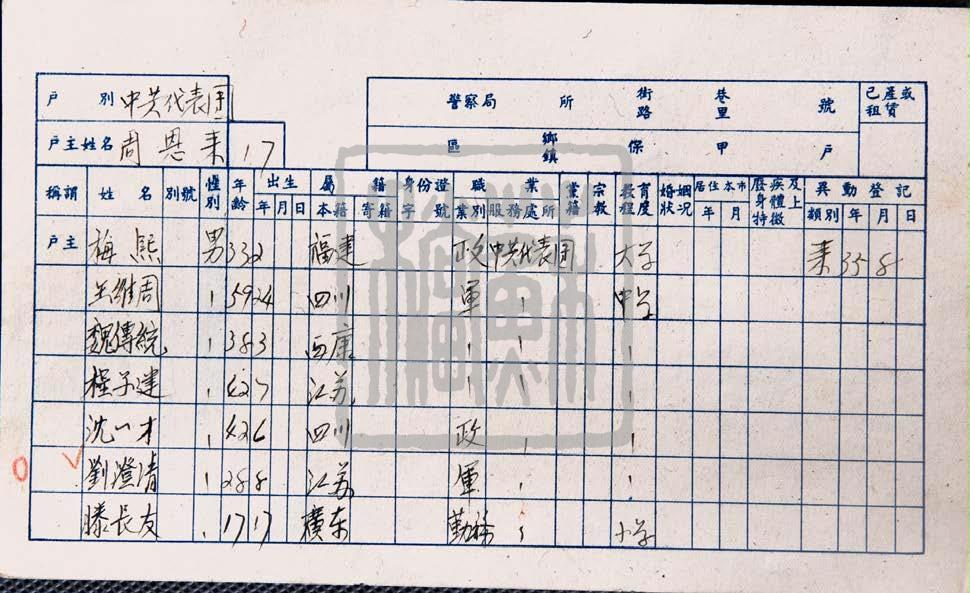 戶別 中共代表团 警察局 所 街路 巷里 號 己產或租賃
戶主姓名 周恩来 17 區 鄉鎮 保 甲 戶
稱謂 姓名 別號 性別 年齡 出生年月日 屬籍 本籍 寄籍 身份證字號 職業 業別 服務處所 黨籍 宗教 教育程度 婚姻狀況 居住本市年月 廢疾及身體上特徵 異動登記 類別年月日
戶主 梅熙 男 33 2 福建 政 中共代表团 大学 来 35 8
王維周 , 59 24 四川 軍 , 中学
魏傳統 , 38 3 西康 , , ,
程子健 , 42 7 江苏 , , ,
沈一才 , 42 6 四川 政 , ,
劉澄清 , 28 8 江苏 軍 , ,
滕長友 , 17 17 廣东 勤務 , 小学